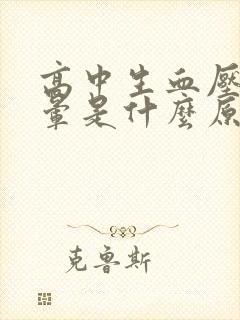 高中生血壓
暈是什麼原
克魯斯